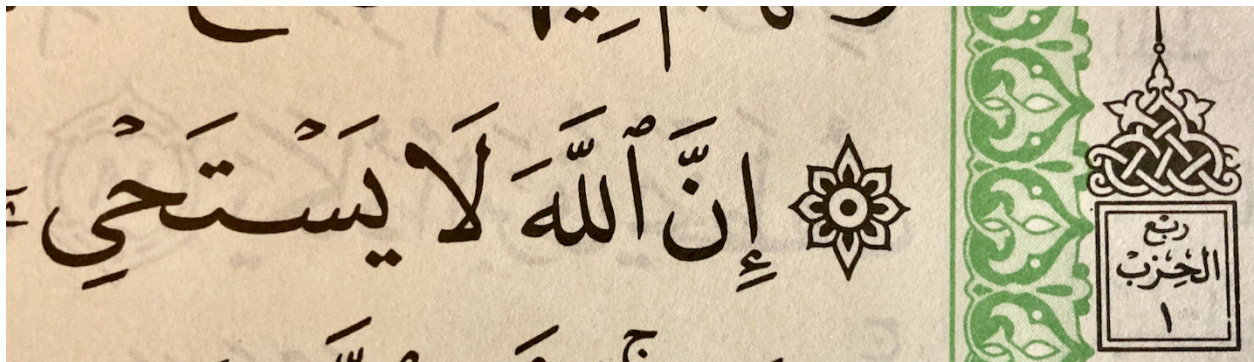 ۞ إِنَّ ٱللَّهَ لَا يَسْتَحْيِ
رُبْع
الحِزْب
١